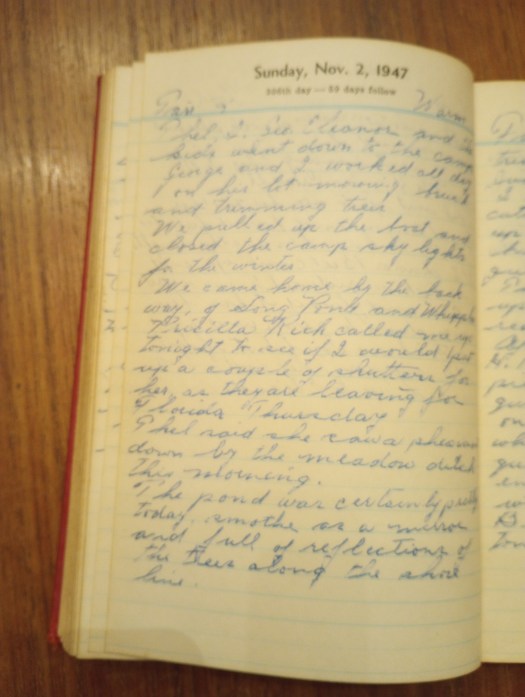 Sunday, Nov. 2, 1947
306th day — 59 days follow
Fair & Warm
Phel, I, Geo Eleanor and the
kids went down to the camp
George and I worked all day
on his lot mowing brush
and trimming trees
We pulled up the boat and
closed the camp sky lights
for the winter
We came home by the back
way, of Long Pond and
Priscilla Rich called me up
tonight to see if I would put
up a couple of shutters for
her, as they are leaving for
Florida Thursday
Phel said she saw a pheasant
down by the meadow ditch
this morning.
The pond was certainly pretty
today, smothe as a mirror
and full of reflections of
the trees along the shore
line.